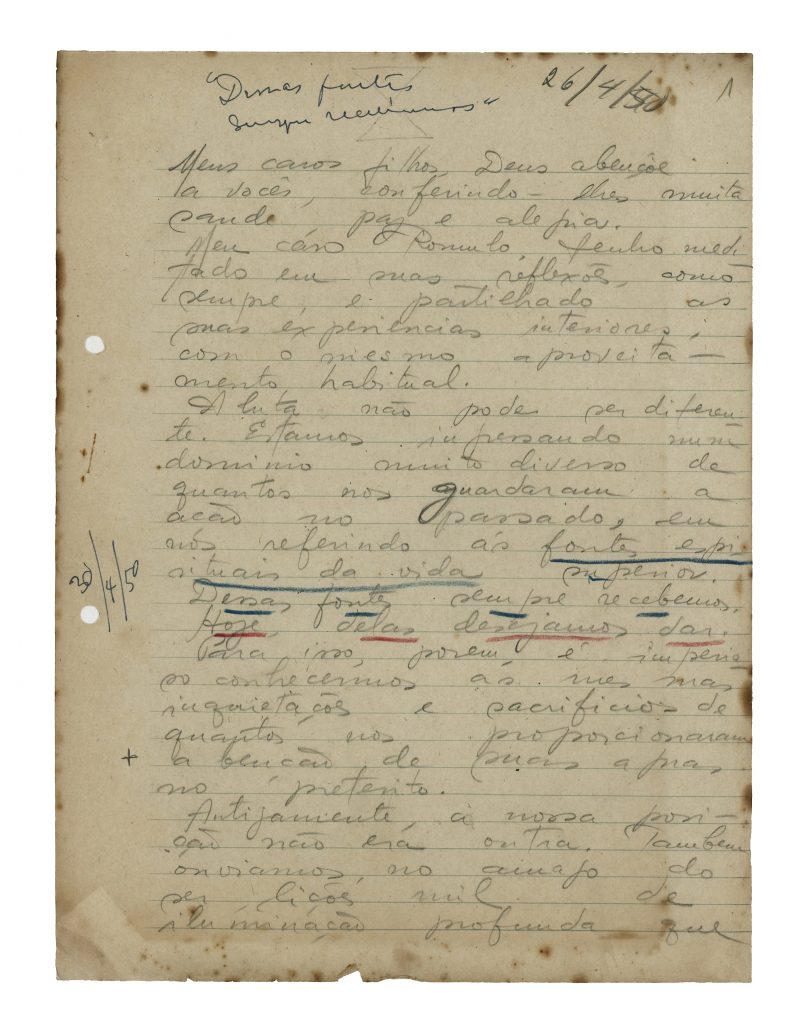 "Dessas fontes
sempre recebemos"
26/4/50
1
Meus caros filhos, Deus abençôe
a vocês, conferindo-lhes muita
saude paz e alegria.
Meu cáro Romulo, tenho medi
tado em suas reflexões, como
sempre, e partilhado as
suas experiencias interiores,
com o mesmo aproveita-
mento habitual.
A luta não pode ser diferen-
te. Estamos ingressando num
dominio muito diverso de
quantos nos guardaram a
acão no passado, em
nos referindo ás fontes espi
rituais da vida superior.
Dessas fontes sempre recebemos.
Hoje, delas desejamos dar.
Para isso, porem, é imperio
so conhecermos as mesmas
inquietações e sacrificios de
quantos nos proporcionaram
a bencão de suas aguas
no preterito.
Antigamente, a nossa posi-
cão não era outra. Tambem
ouviamos, no amago do
ser lições mil de
iluminacão profunda que
/4/50
+